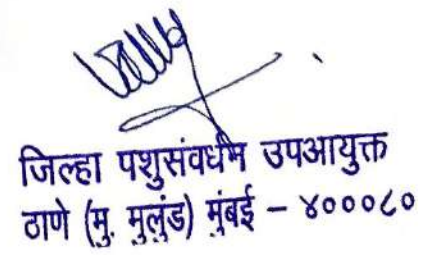 जिल्हा पशुसंवर्धन उपआयुक्त
ठाणे (मु. मुलुंड) मुंबई – ४०००८०